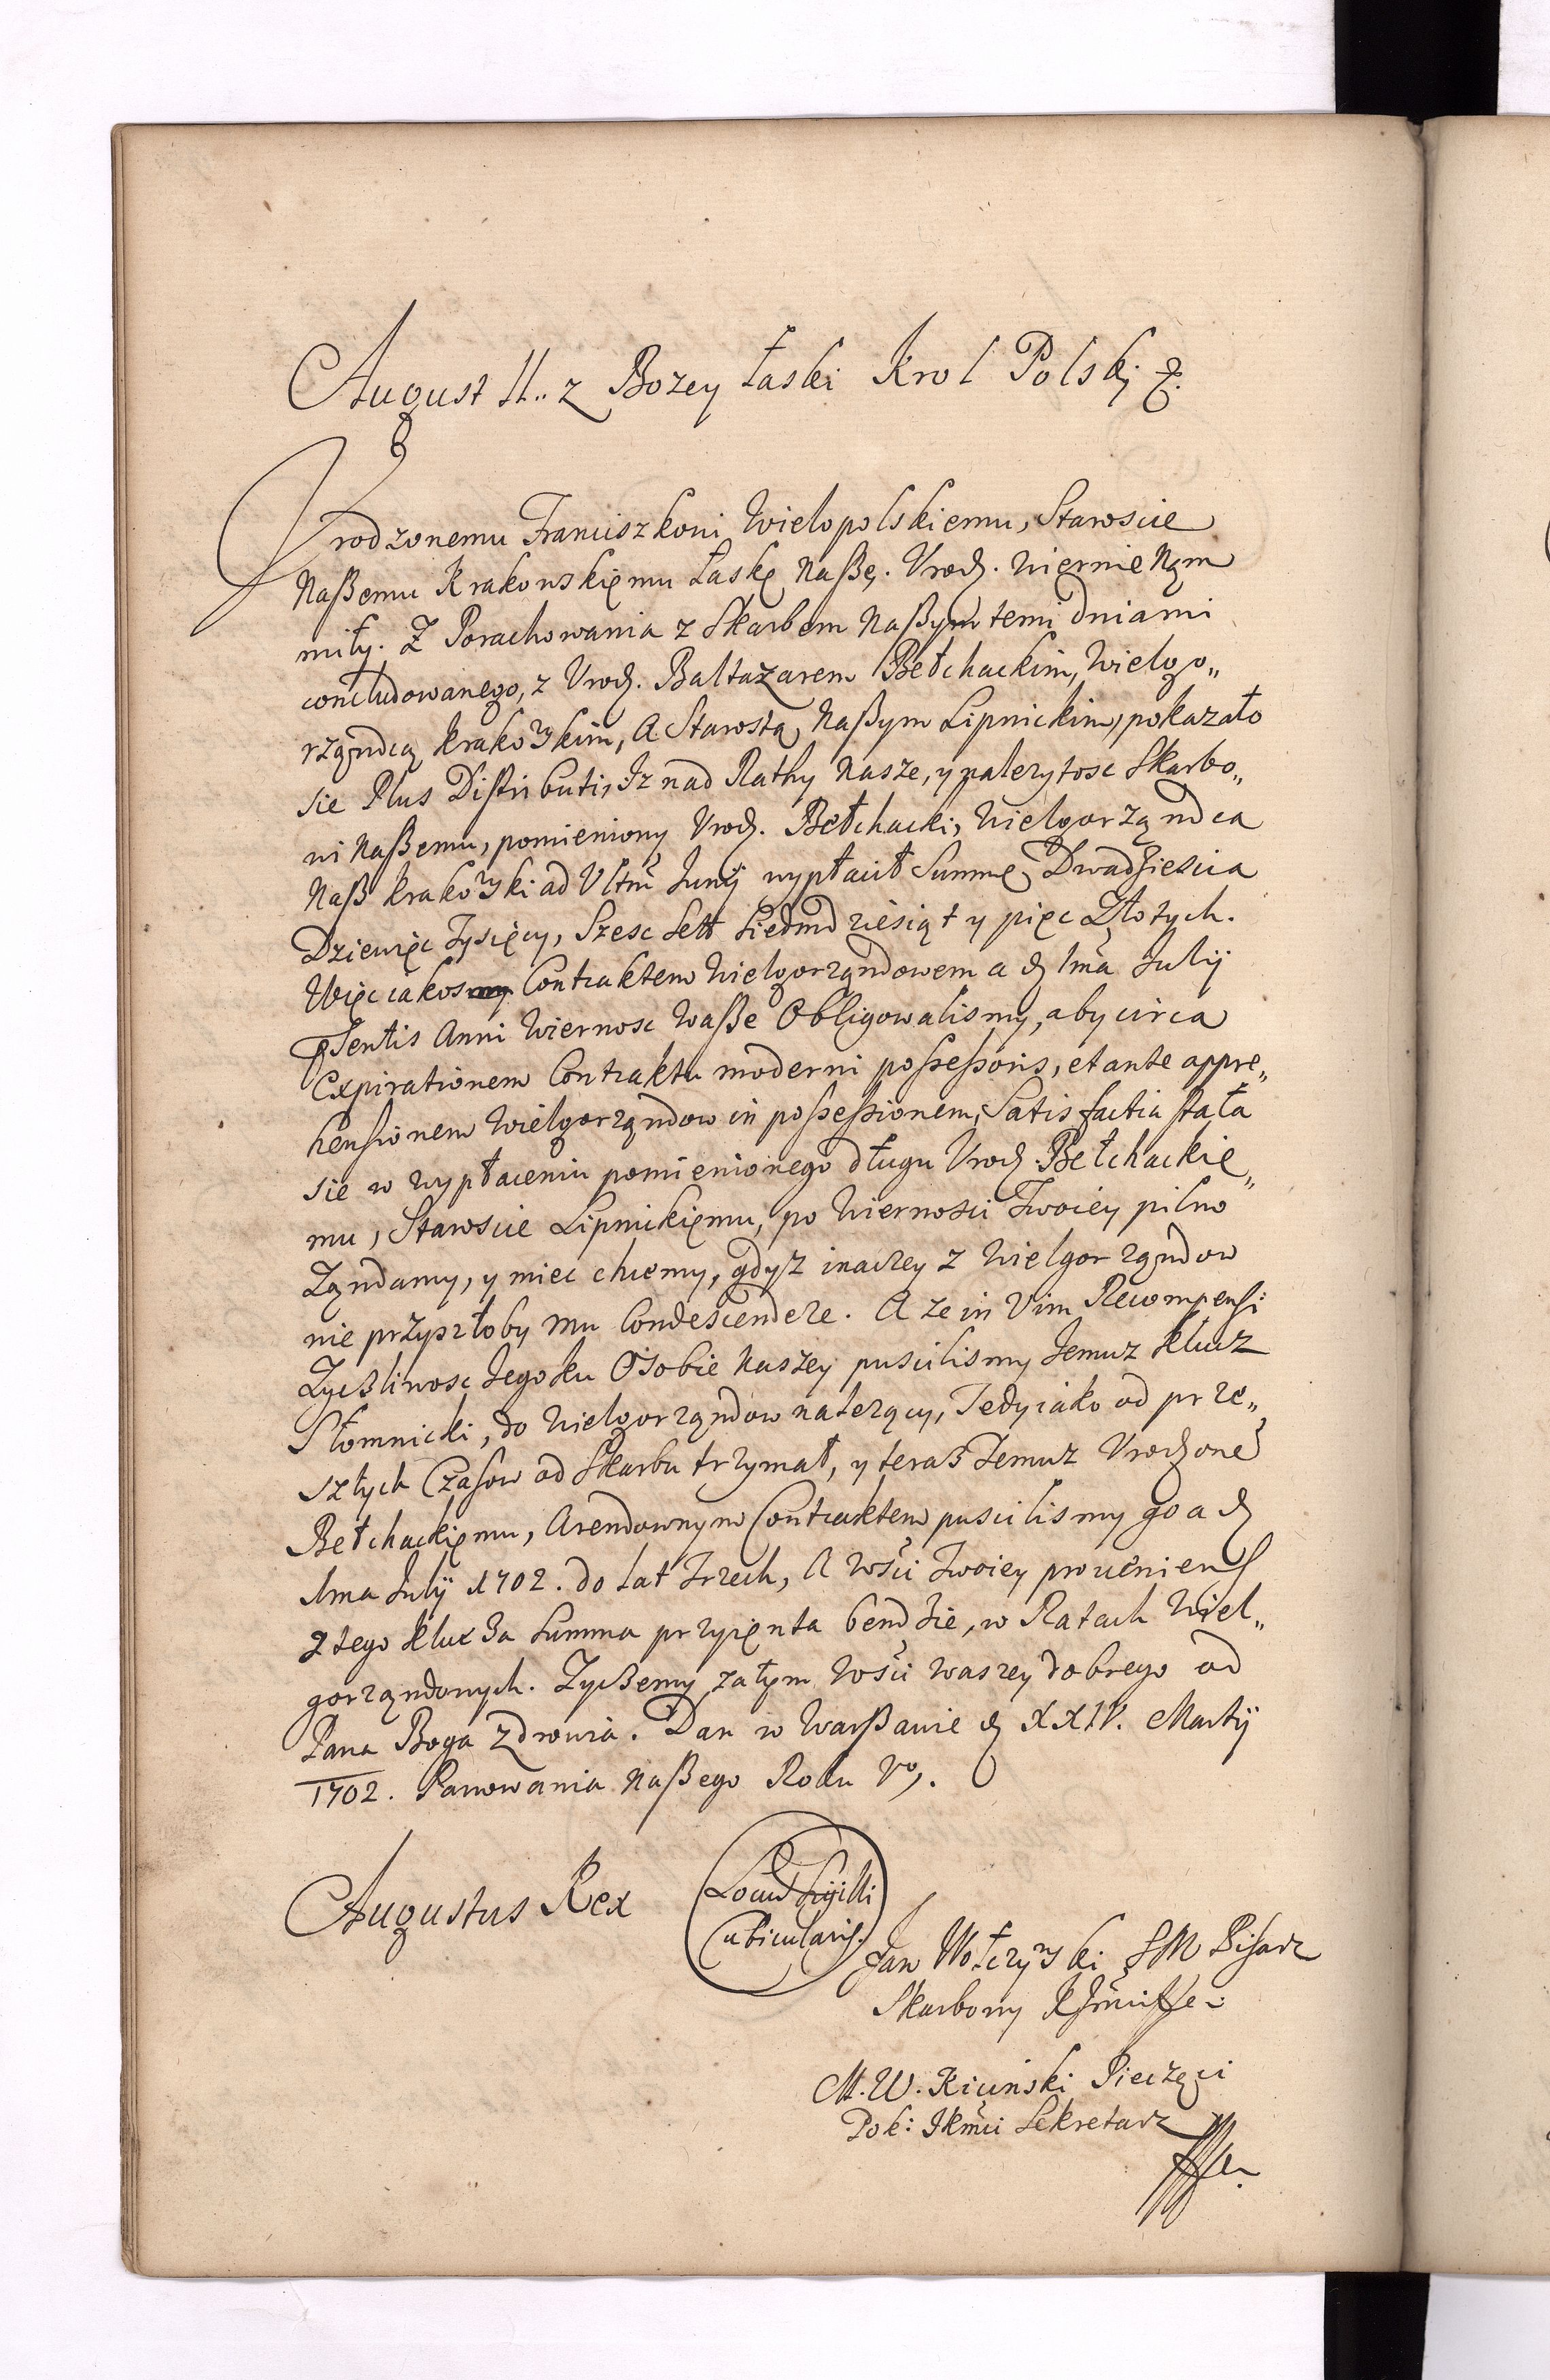 August II.. z Bozey Łaski Krol Polski &.
Vrodzonemu Franciszkoni Wielopolskiemu, Staroscie
Naßemu Krakowskięmu Łaskę Naßę. Vrodz. wiernie Nąm
miły. Z Porachowania z Skarbem Naßym temi dniami
concludowanego, z Vrodz. Baltazarem Bełchackim, Wielgo„
rząndcą krakowskim, A Starostą Naßym Lipnickim, pokazało
sie Plus Distributi, Iz nad Rathy Nasze, y nalezytosc Skarbo„
wi Naßemu, pomieniony Vrodz. Bełchacki, Wielgorząndca
Naß krakowski ad Vltm̃ Junij wypłacił Summę Dwadziescia
Dziewięc Tysięcy, Szesc Sett Siedmdziesiąt y pięc Złotych.
Więc iakosmy Contraktem Wielgorząndowem a d 1mã Julij
pr̃sentis Anni Wiernosc Waße Obligowalismy, aby circa
Expirationem Contraktu moderni possessoris, et ante appre„
hensionem Wielgorząndow in possessionem, Satisfactia stała
sie w wypłaceniu pomienionego długu Vrodz. Bełchackie„
mu, Staroscie Lipnickięmu, po Wiernosci Twoiey pilno
Ząndamy, y miec chcemy, gdysz inaczey z Wielgorząndow
nie przyszłoby mu Condescendere. A ze in Vim Recompensi
Zyczliwosc Jego ku Osobie Naszey puscilismy Jemuz klucz
Słomnicki, do Wielgorząndow nalezący, Tedy iako od prze„
szłych Czasow od Skarbu trzymał, y teraz Jemuz Vrodzone͠
Bełchackięmu, Arendownym Contraktem puscilismy go a d
1ma Julij 1702. do lat Trzech, A Wści Twoiey proueniens
z tego klucza Summa przyięnta bendzie, w Ratach Wiel„
gorząndowych. Zyczemy zatym Wści Waszey dobrego od
Pana Boga zdrowia. Dan w Warßawie d XXIV. Martij
1702. Panowania Naßego Roku Vo,.
Augustus Rex
Locus Sigilli
Cubicularis.
Jan Wołczynski SM Pisarz
Skarbowy
M. W. Kicinski Pieczęci
Pok: JKm̃ci Sekretarz